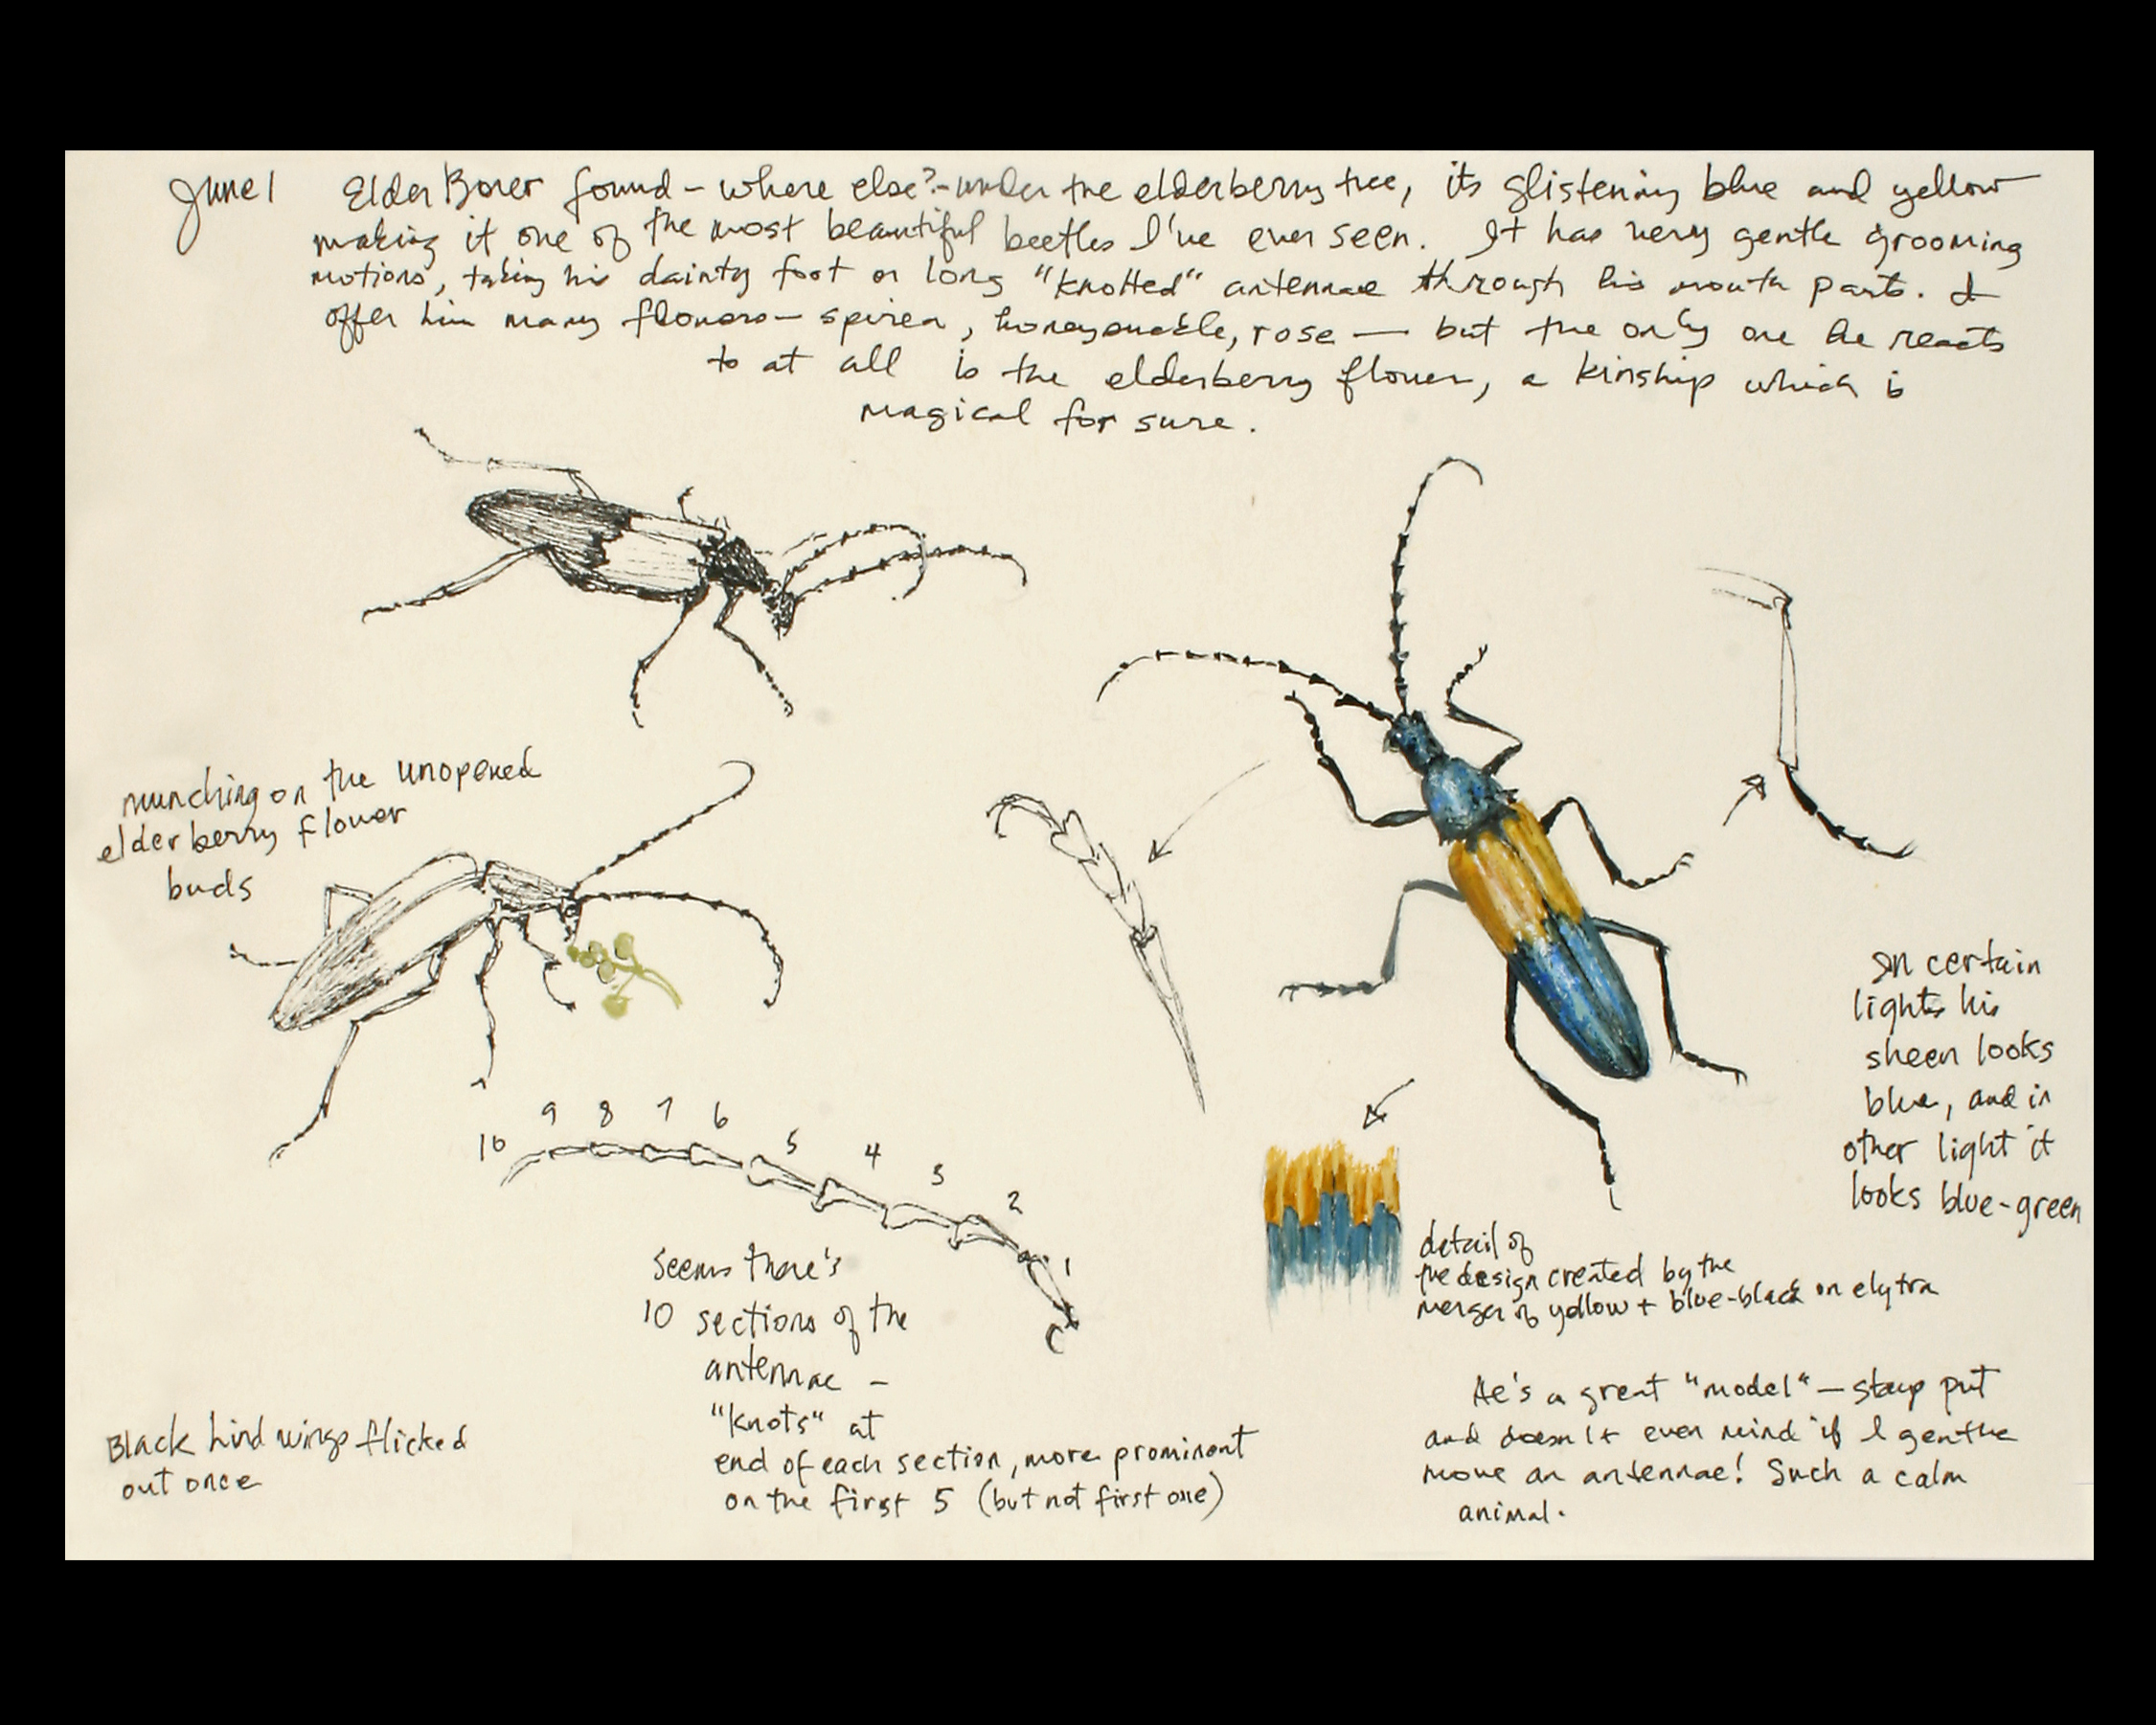 June 1 Elder Borer found - where else? - under the elderberry tree, its glistening blue and yellow
making it one of the most beautiful beetles I've ever seen. It has very gentle grooming
motions, taking his dainty foot or long "knotted" antennae through his mouth parts. I
offer him many flowers - spirea, honeysuckle, rose — but the only one he reacts
to at all is the elderberry flower, a kinship which is
magical for sure.
munching on the unopened
elderberry flower
buds
In certain
lights his
sheen looks
blue, and in
other light it
looks blue-green
10 9 8 7 6 5 4 3 2 1
Seems there's
10 sections of the
antennae -
"knots" at
end of each section, more prominent
on the first 5 (but not first one)
detail of
the design created by the
merger of yellow + blue-black on elytra
He's a great "model" - stays put
and doesn't even mind if I gentle
move an antennae! Such a calm
animal.
Black hind wings flicked
out once